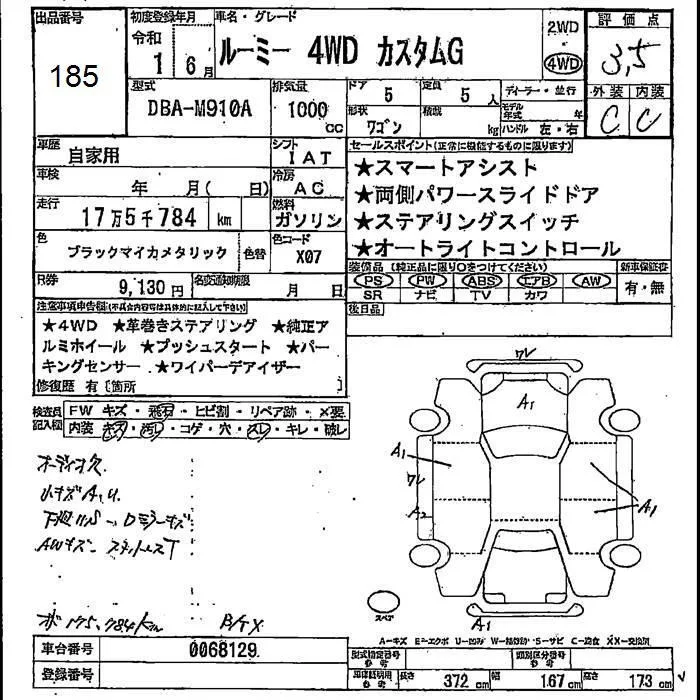 出品番号
185
初度登録年月
令和
1 6月
車名・グレード
ルーミー 4WD カスタムG
2WD
4WD
評価点
3.5
外装 内装
C C
型式
DBA-M910A
排気量
1000
cc
ドア
5
定員
5人
形状
ワゴン
積載
kg
ディーラー・並行
モデル年式 年
ハンドル 左・右
車歴
自家用
シフト
IAT
車検
年 月( 日)
冷房
AC
走行
17万5千784 km
燃料
ガソリン
色
ブラックマイカメタリック
色替
色コード
X07
R券
9,130円
名変期限
月 日
セールスポイント(正常に機能するものに限ります)
★スマートアシスト
★両側パワースライドドア
★ステアリングスイッチ
★オートライトコントロール
装備品(純正品に限り○をつけてください)
PS PW ABS エアB AW
SR ナビ TV カワ
新車保証書
有・無
後日品
注意事項申告欄(不具合内容等は具体的に記入して下さい)
★4WD ★革巻きステアリング ★純正ア
ルミホイール ★プッシュスタート ★パー
キングセンサー ★ワイパーデアイザー
修復歴 有〔箇所 〕
検査員記入欄
FW キズ・飛石・ヒビ割・リペア跡・X要
内装 キズ・汚レ・コゲ・穴・スレ・キレ・破レ
オーディオ欠
小キズA,U
AWキズ
175,784km
ワレ
A1
A1
ワレ
A2
A1
A1
スペア
A-キズ E-エクボ U-凹み W-補修跡 S-サビ C-腐食 XX-交換済
車台番号
0068129
登録番号
型式指定番号
参考
類別区分番号
参考
車庫証明用
参考
長さ 372 cm
幅 167 cm
高さ 173 cm